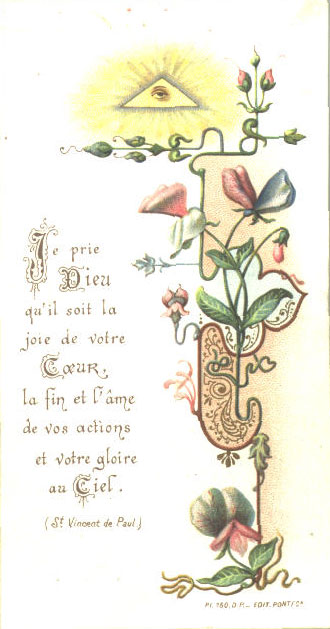 Je prie
Dieu
qu'il soit la
joie de votre
Cœur,
la fin et l'âme
de vos actions
et votre gloire
au Ciel.
(St Vincent de Paul)
Pl. 160, D.P. — EDIT. PONTIF^s.